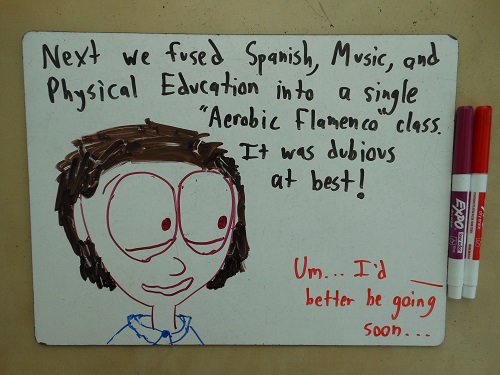 Next we fused Spanish, Music, and
Physical Education into a single
"Aerobic Flamenco" class.
It was dubious
at best!
Um... I'd
better be going
soon...
EXPO